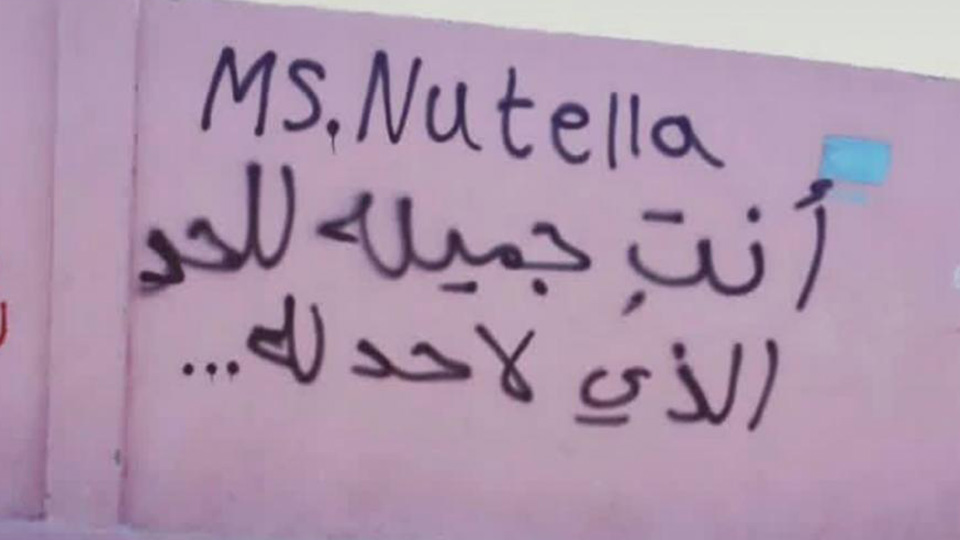 MS.Nutella
أنتِ جميله للحد
الذي لا حد له...